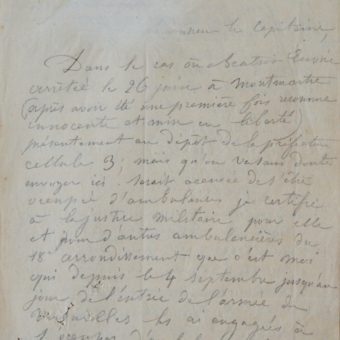 le Capitaine
Dans le cas où béatrix Excoffon
arrêtée le 26 juin à Montmartre
(après avoir été une première fois reconnue
innocente et mise en liberté)
présentement au dépôt de la préfecture
cellule 3, mais qu'on va sans doute
envoyer ici serait accusée de s'être
occupée d'ambulances je certifie
à la justice militaire pour elle
et pour d'autres ambulancières du
18e arrondissement que c'est moi
qui depuis le 4 septembre jusqu'au
jour de l'entrée de l'armée de
Versailles les ai engagées à